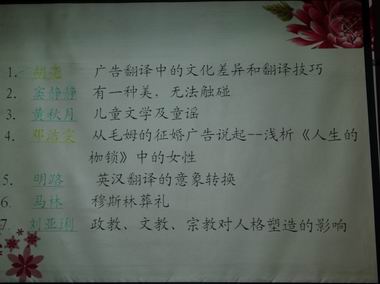 1. 胡尧 广告翻译中的文化差异和翻译技巧
2. 栾静静 有一种美，无法触碰
3. 黄秋月 儿童文学及童谣
4. 邓洁雯 从毛姆的征婚广告说起--浅析《人生的
枷锁》中的女性
5. 明路 英汉翻译的意象转换
6. 马林 穆斯林葬礼
7. 刘亚俐 政教、文教、宗教对人格塑造的影响